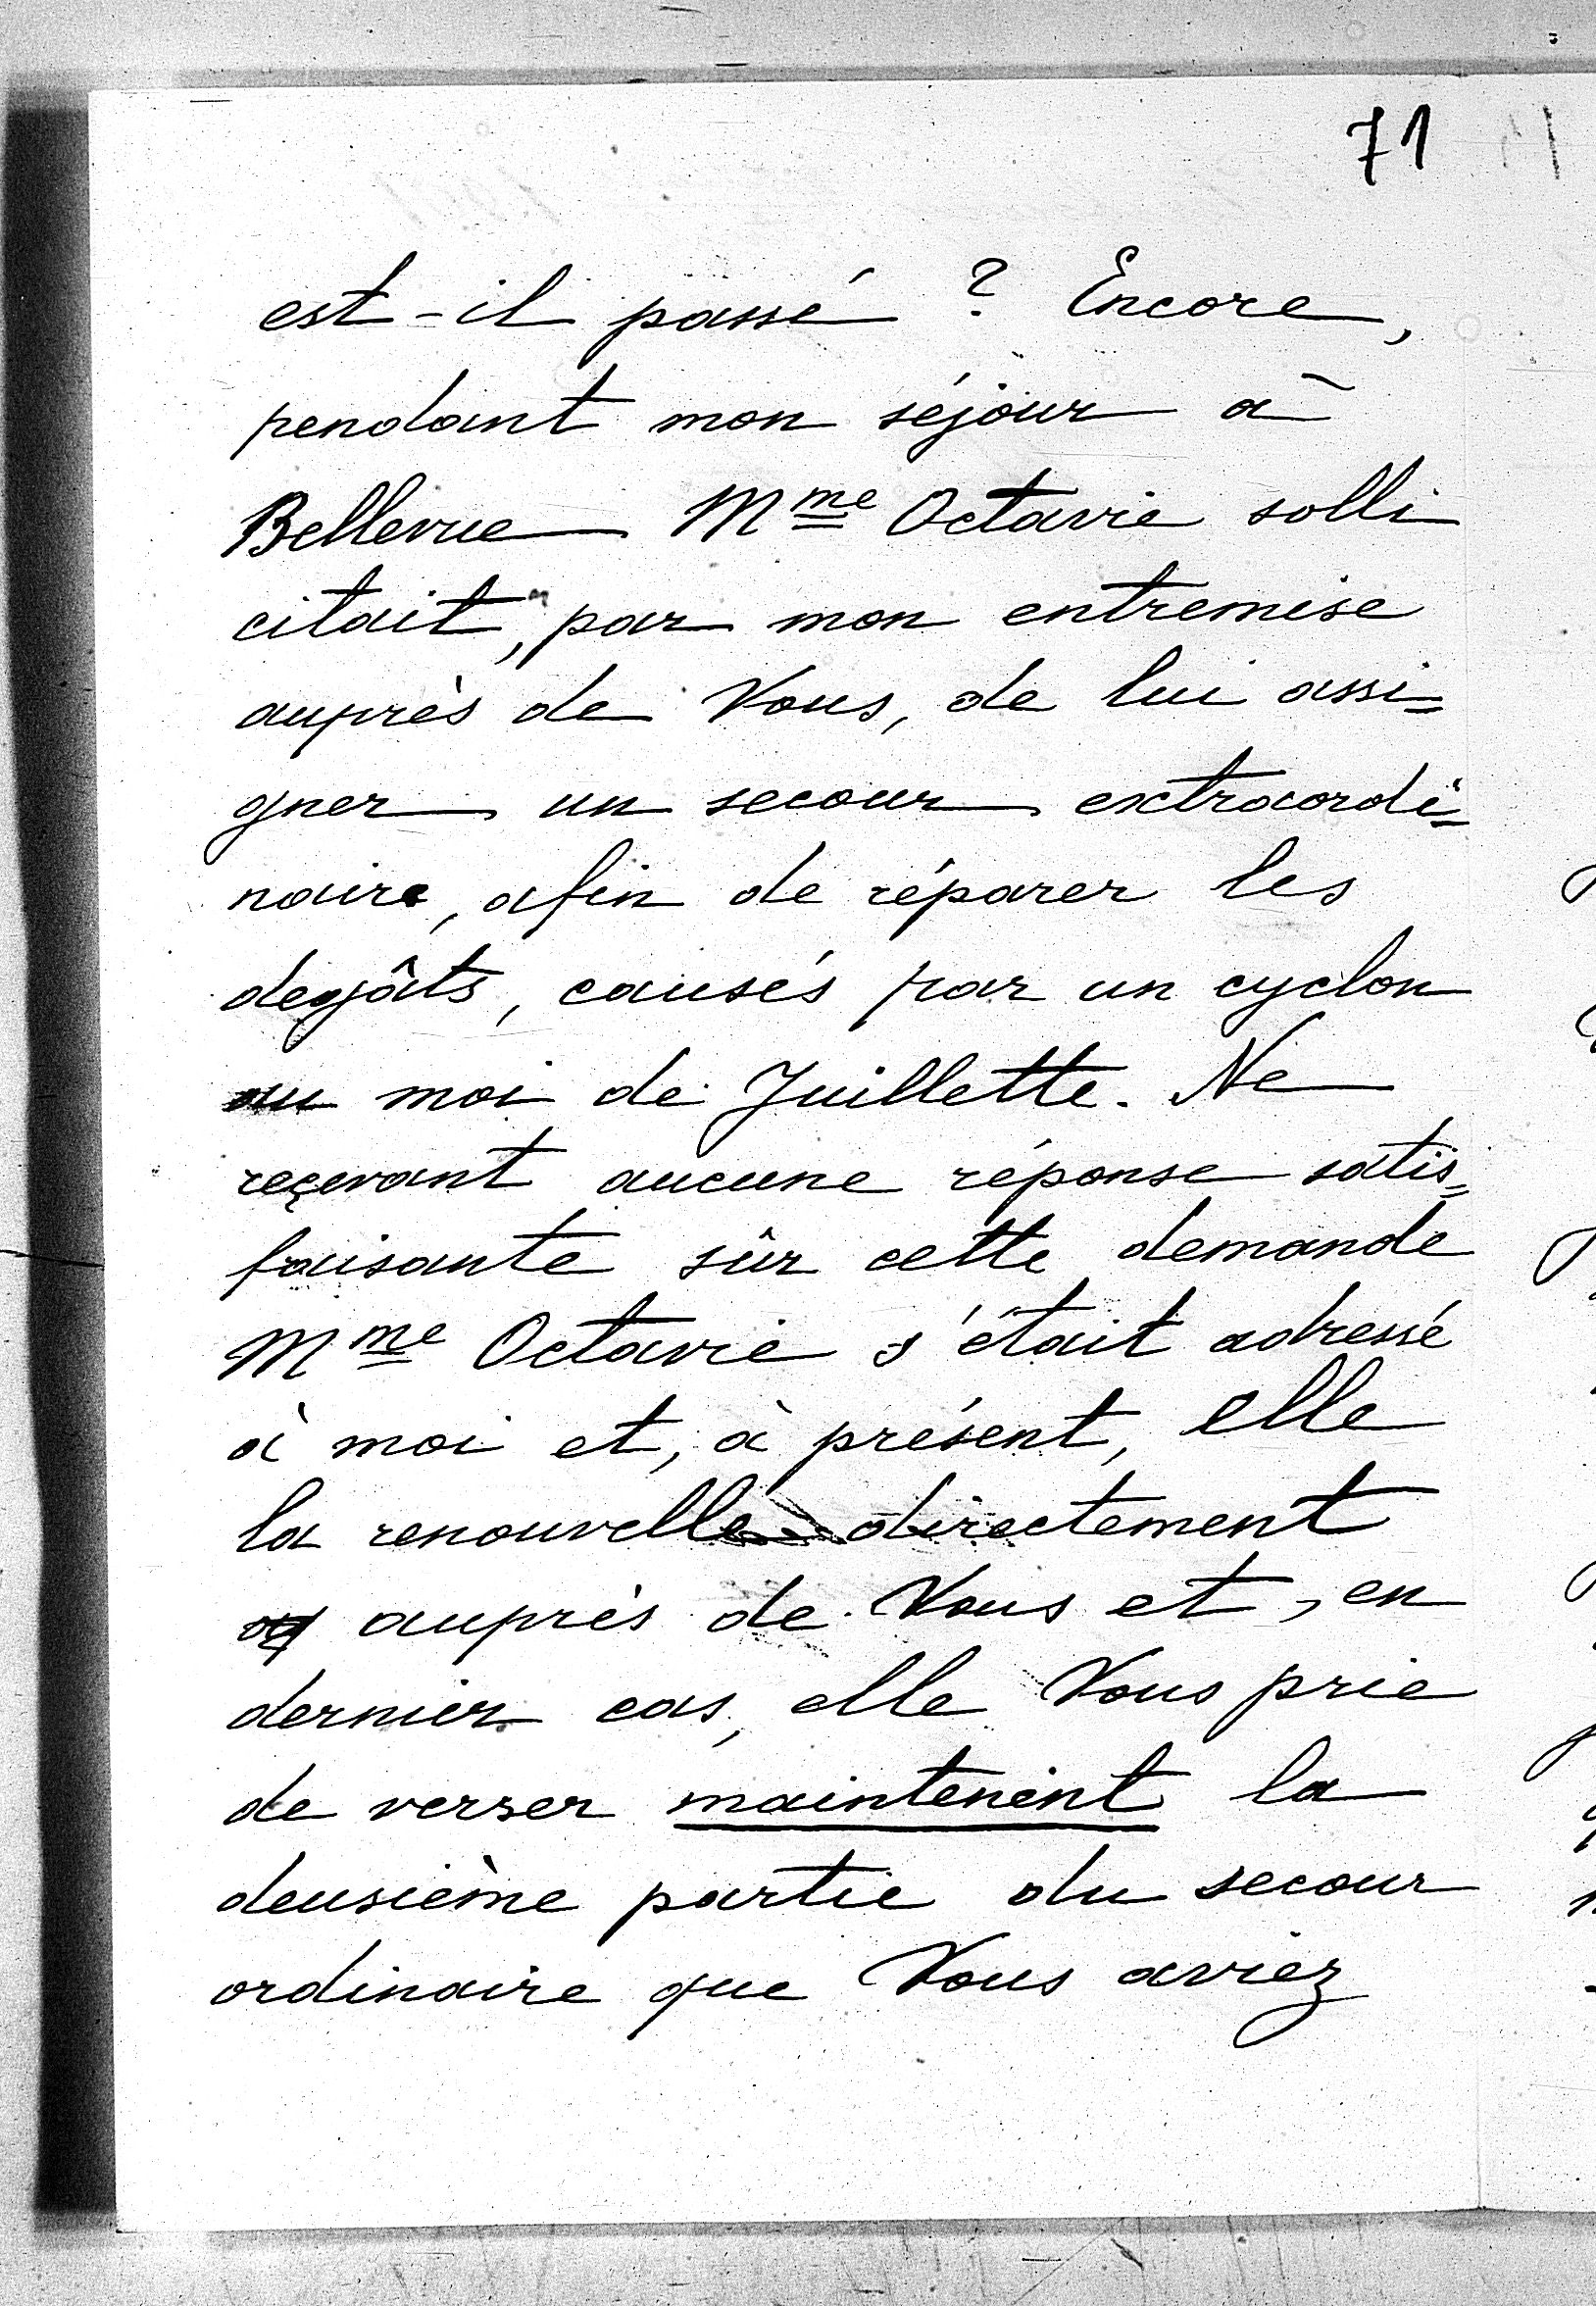 71
est-il passé ? Encore,
pendant mon séjour à
Bellevue Mme Octavie solli
citait, par mon entremise
auprès de Vous, de lui assi=
gner un secour extraordi=
naire, afin de réparer les
degâts, causés par un cyclon
au moi de Juillette. Ne
reçevant aucune réponse satis=
faisante sûr cette demande
Mme Octavie s'était adressé
à moi et, à présent, elle
la renouvelle directement
auprès de Vous et, en
dernier cas, elle Vous prie
de verser maintenent la
deusième partie du secour
ordinaire que Vous aviez